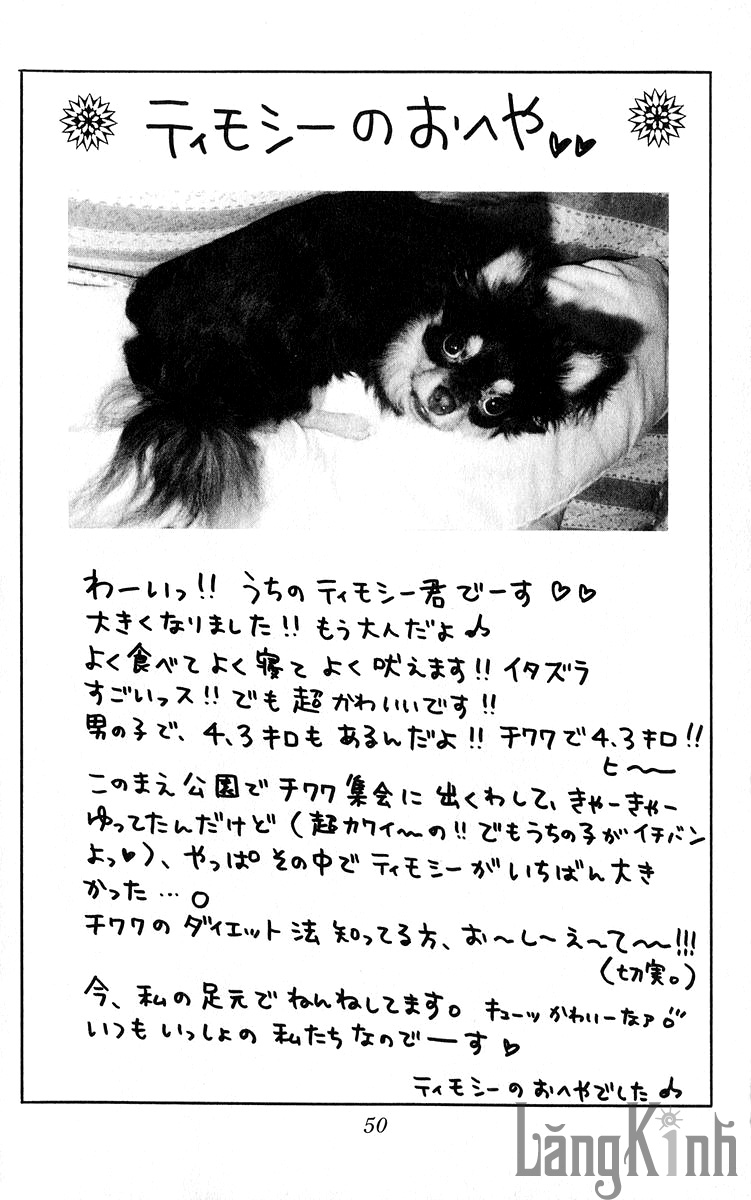 ティモシーのおへや♡♡
わーいっ!! うちの ティモシー君でーす ♡♡
大きくなりました!! もう大人だよ♪
よく食べて よく寝て よく吠えます!! イタズラ
すごいっス!! でも超かわいいです!!
男の子で、4.3キロも あるんだよ!! チワワで4.3キロ!!
ヒ〜〜
このまえ公園でチワワ集会に出くわして、きゃーきゃー
ゆってたんだけど(超カワイ〜の!! でもうちの子がイチバン
よっ♥)、やっぱ その中で ティモシーが いちばん大き
かった…。
チワワの ダイエット法 知ってる方、お〜し〜え〜て〜〜!!!
(切実。)
今、私の足元で ねんねしてます。 キューッ かわいーなァ。
いつも いっしょの 私たちなのでーーす ♡
ティモシーの おへやでした♪
50
LăngKính